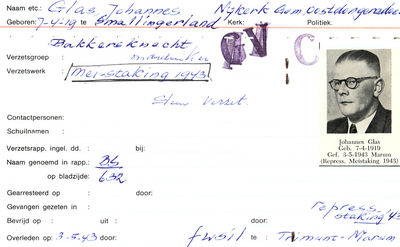 Naam etc.: Glas, Johannes Nijkerk Gem. Oostdongeradeel
Geboren: 7-4-19 te Smallingerland Kerk: Politiek:
Bakkersknecht
Verzetsgroep :
Verzetswerk : Mei-staking 1943
OVC
Steun Verzet
Contactpersonen:
Schuilnaam :
Verzetsrapp. ingel. dd. : bij:
Naam genoemd in rapp.: Bs
op bladzijde: 632
Johannes Glas
Geb. 7-4-1919
Gef. 3-5-1943 Marum
(Repress. Meistaking 1943)
Gearresteerd op : door:
Gevangen gezeten in : repress.
Bevrijd op : uit : door: staking '43
Overleden op: 3-5-43 door: fusil te: Trimunt-Marum